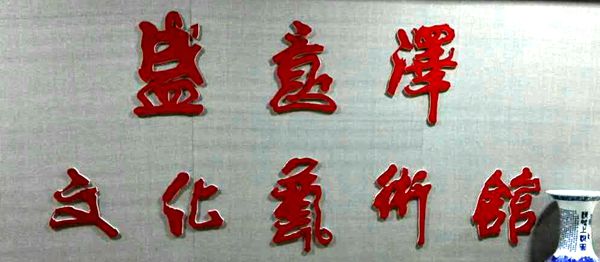 盛意澤
文化藝術館